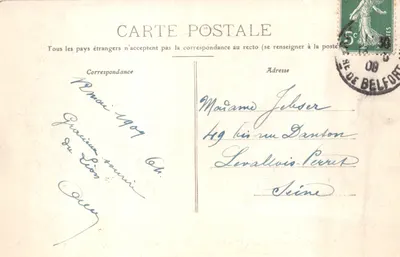 CARTE POSTALE
Tous les pays étrangers n'acceptent pas la correspondance au recto (se renseigner à la poste
Correspondance
Adresse
mai 1909
Gracieux souvenir
du Lion
Madame Jelser
49 bis rue Danton
Levallois-Perret
Seine
5c
DE BELFORT